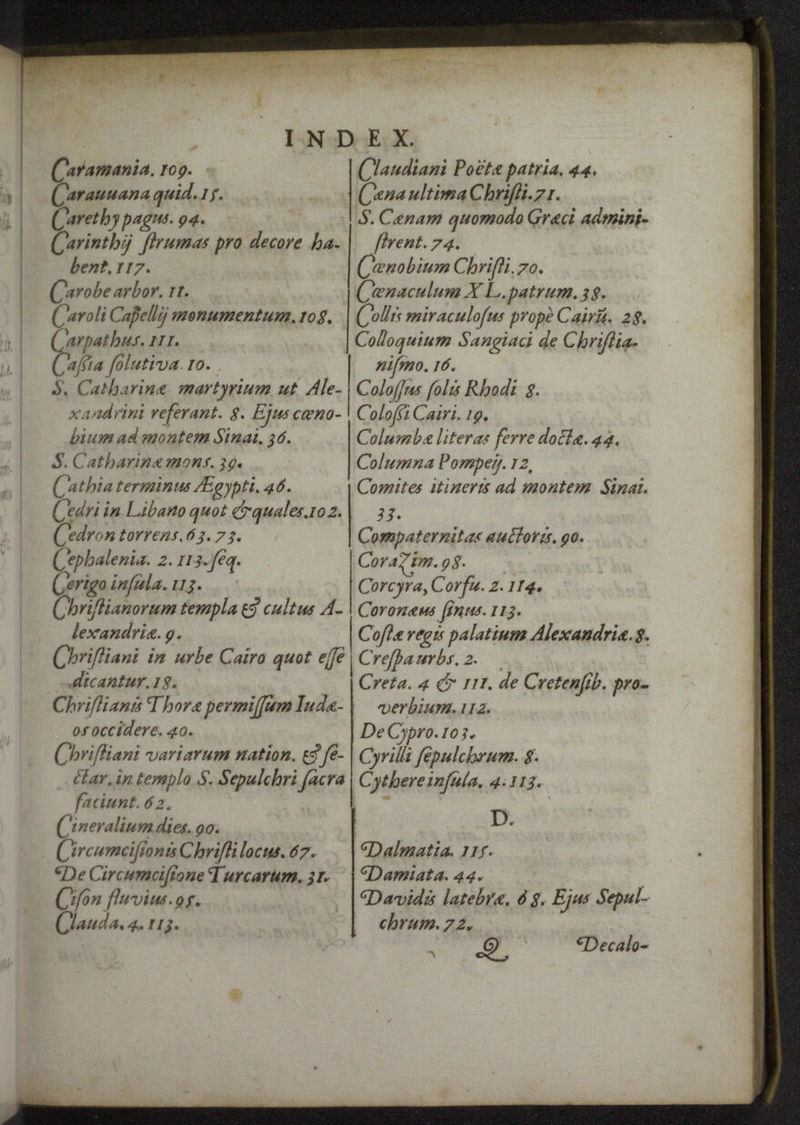 INDEX.
Caramania. 109.
Carauuana quid. 15.
Carethy pagus. 94.
Carinthij ſtrumas pro decore ha-
bent. 117.
Carobe arbor. 11.
Caroli Capellij monumentum. 108.
Carpathus. 111.
Caſſia ſolutiva. 10.
S. Catharinæ martyrium ut Ale-
xandrini referant. 8. Ejus cœno-
bium ad montem Sinai. 36.
S. Catharinæ mons. 39.
Cathia terminus Ægypti. 46.
Cedri in Libano quot & quales. 102.
Cedron torrens. 63. 73.
Cephalenia. 2. 113. ſeq.
Cerigo inſula. 113.
Chriſtianorum templa & cultus A-
lexandriæ. 9.
Chriſtiani in urbe Cairo quot eſſe
dicantur. 18.
Chriſtianis Thoræ permiſſum Iudæ-
os occidere. 40.
Chriſtiani variarum nation. & ſe-
ctar. in templo S. Sepulchri ſacra
faciunt. 62.
Cineralium dies. 90.
Circumciſionis Chriſti locus. 67.
De Circumciſione Turcarum. 31.
Ciſon fluvius. 95.
Clauda. 4. 113.
Claudiani Poëtæ patria. 44.
Cœna ultima Chriſti. 71.
S. Cœnam quomodo Græci admini-
ſtrent. 74.
Cœnobium Chriſti. 70.
Cœnaculum XL. patrum. 38.
Collis miraculoſus propè Cairū. 28.
Colloquium Sangiaci de Chriſtia-
niſmo. 16.
Coloſſus ſolis Rhodi 8.
Coloſſi Cairi. 19.
Columbæ literas ferre doctæ. 44.
Columna Pompeij. 12.
Comites itineris ad montem Sinai.
33.
Compaternitas auctoris. 90.
Corazim. 98.
Corcyra, Corfu. 2. 114.
Coronæus ſinus. 113.
Coſtæ regis palatium Alexandriæ. 8.
Creſpa urbs. 2.
Creta. 4 & 111. de Cretenſib. pro-
verbium. 112.
De Cypro. 103.
Cyrilli ſepulchrum. 8.
Cythere inſula. 4. 113.
D.
Dalmatia. 115.
Damiata. 44.
Davidis latebræ. 68. Ejus Sepul-
chrum. 72.
Q Decalo-